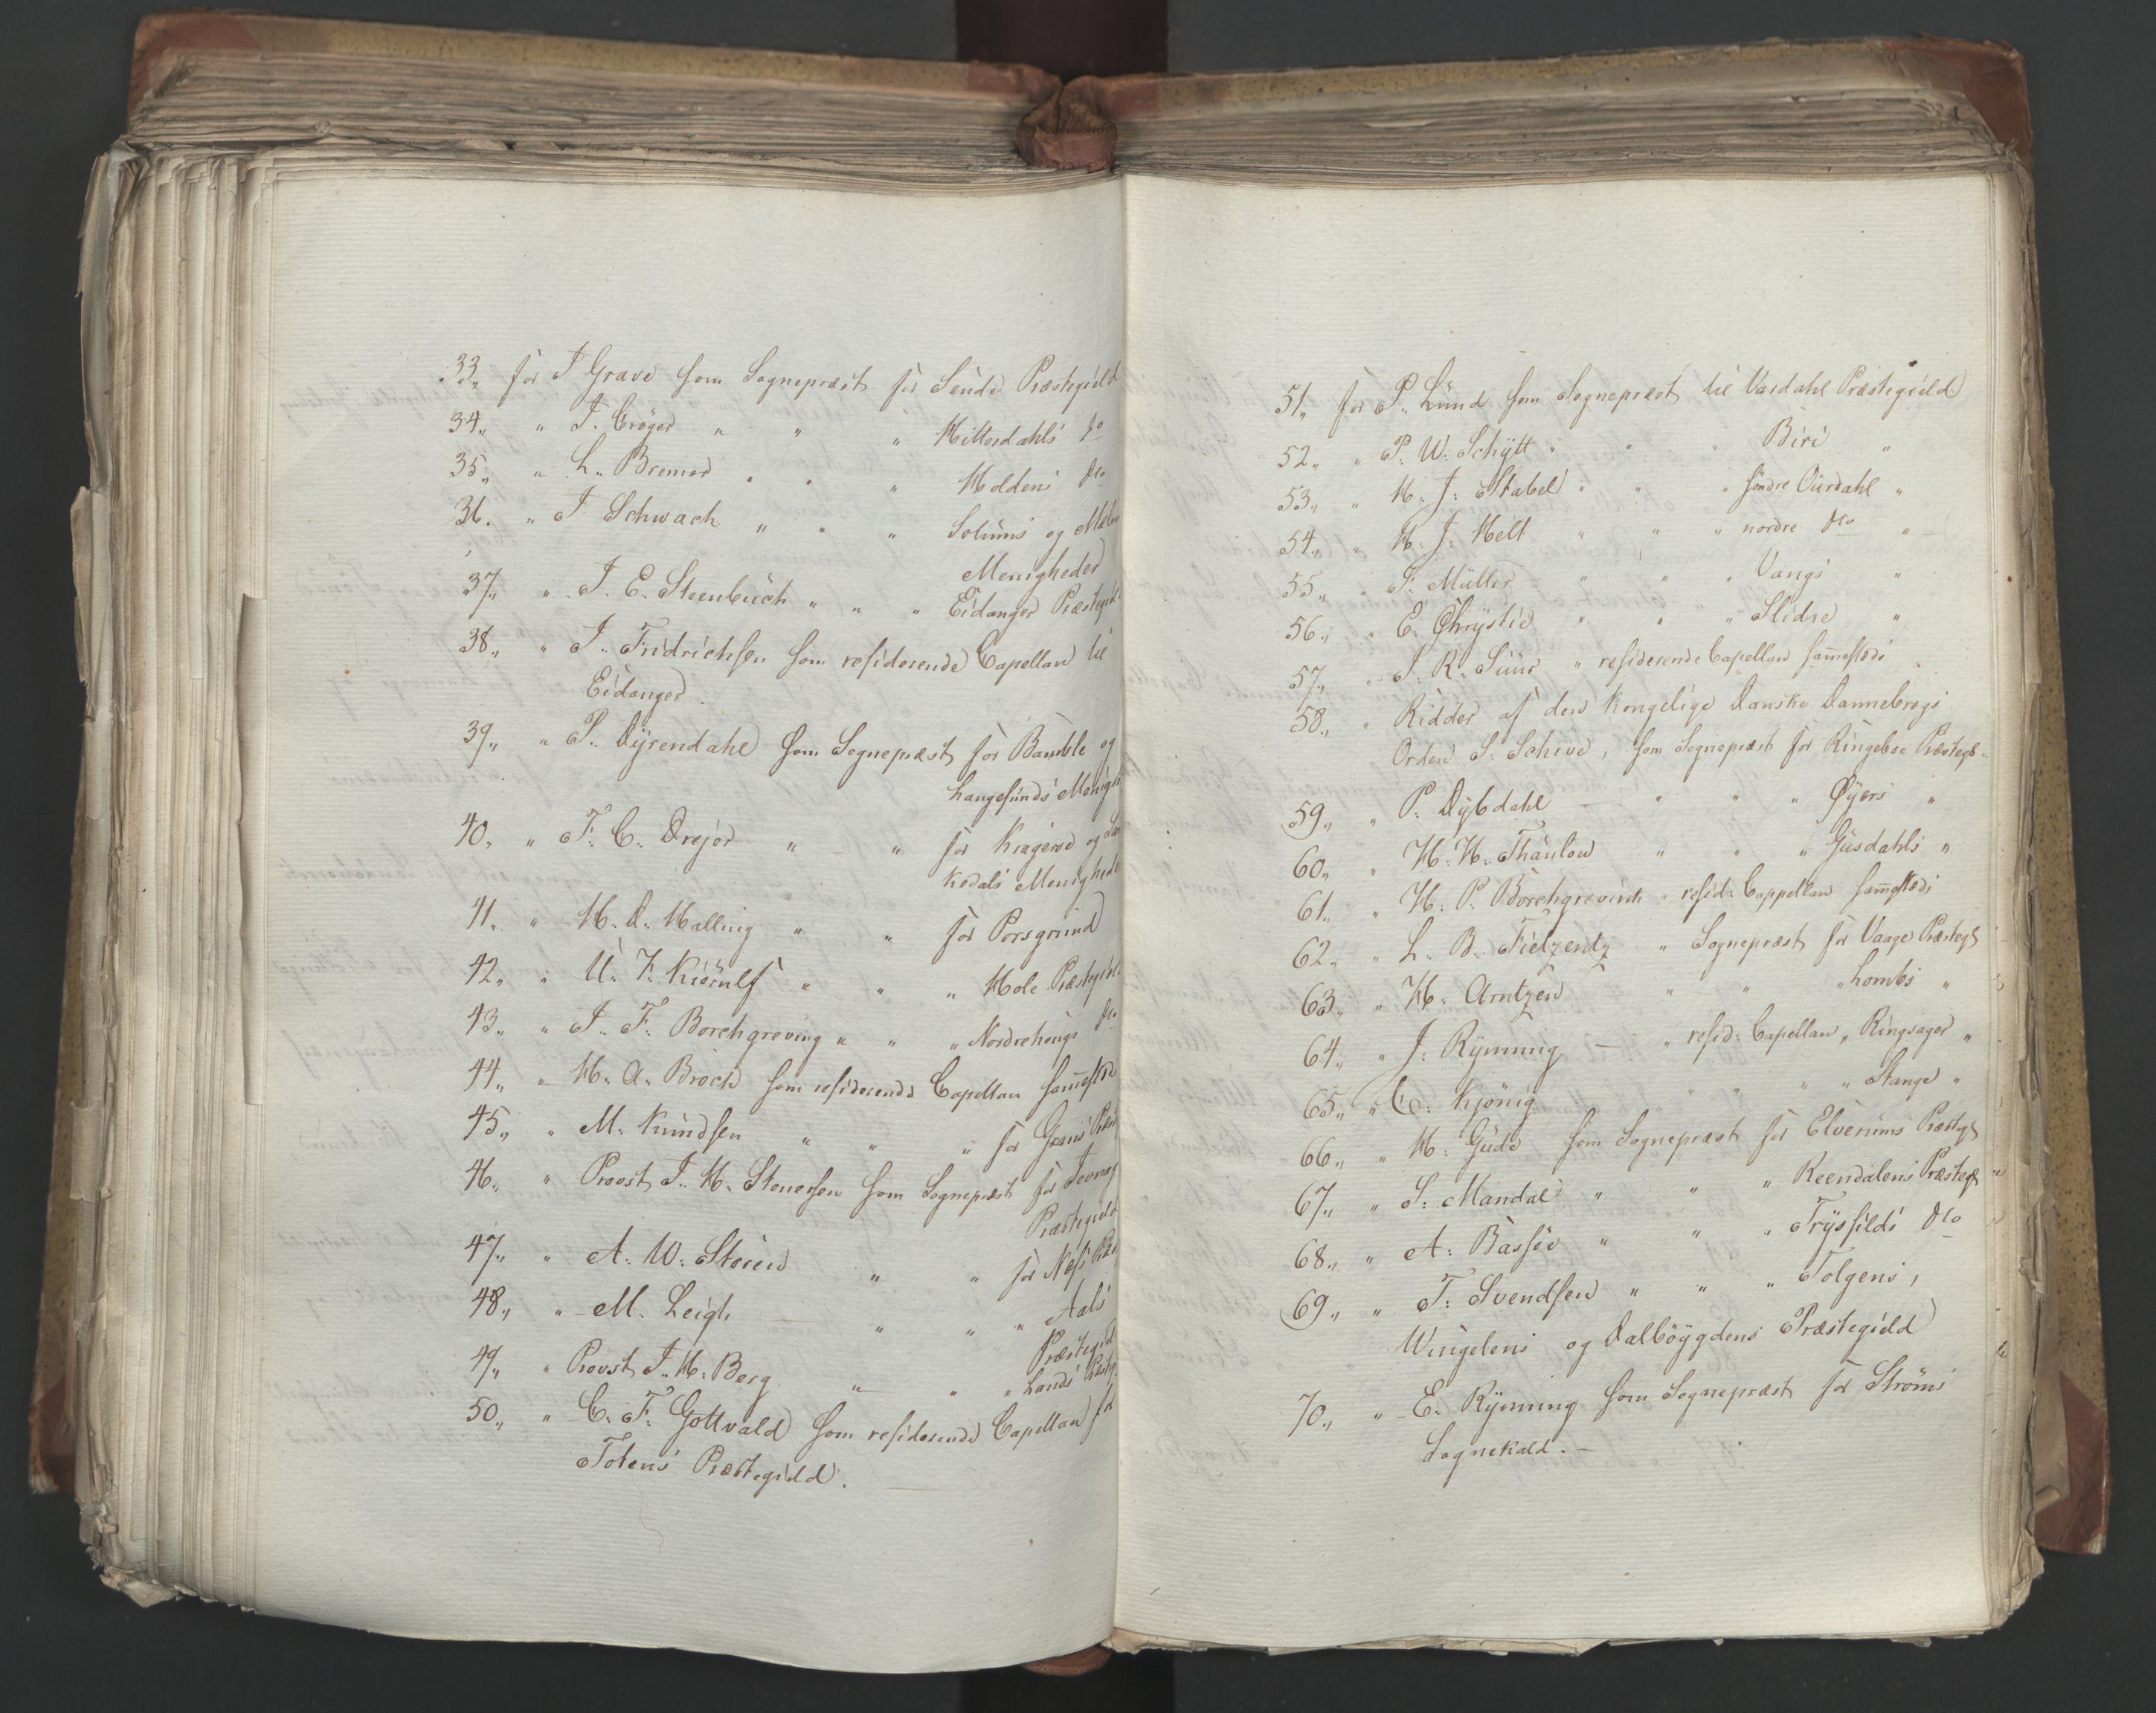 33„ for J Grave som Sognepræst for Seude Præstegield
34„ „ J. Crøger „ „ „ Hitterdahls do
35„ „ L. Bremer „ „ „ Holdens do
36. „ J Schwach „ „ „ Solums og
Menigheder
37„ „ J. E. Steenbuch „ „ „ Eidanger Præstegield
38„ „ J. Fridrichsen som residerende Capellan til
Eidanger.
39„ „ P. Dyrendahl som Sognepræst for Bamble og
Langesunds
40„ „ F. C. Drejer „ „ for Kragerøe og
Kedals Menigheder
41„ „ H. D. Halling „ „ for Porsgrund
42„ „ U. F. Kiørulf „ „ „ Hole Præstegield
43„ „ J. F. Borchgreving „ „ „ Nordrehougs do
44„ „ H. A. Broch som residerende Capellan sammesteds
45„ „ M. Knudsen „ „ „ for Grans
46„ „ Provst J. H. Stenersen som Sognepræst for
Præstegield
47„ „ A. W. Støren „ „ for Næss
48„ „ M. Leigh „ „ „ Aals
Præstegield
49„ „ Provst J. H. Berg „ „ „ Lands
50„ „ C. F. Gottvald som residerende Capellan for
Totens Præstegield.
51„ for P. Lund som Sognepræst til Vardahl Præstegield
52„ „ P. W. Schytt „ „ „ Biri „
53„ „ H. J. Stabel „ „ „ søndre Ourdahl „
54„ „ H. J. Helt „ „ „ nordre do „
55„ „ S. Müller „ „ „ Vangs „
56„ „ E. Chrystie „ „ „ Slidre „
57„ „ S. R. Suur „ residerende Capellan sammesteds
58„ „ Ridder af den Kongelige Danske Dannebrogs
Orden S. Schive, som Sognepræst for Ringeboe Præstegd
59„ „ P. Dybdahl — „ „ „ Øyers „
60„ „ H. H. Thaulow „ „ „ Gusdahls „
61„ „ H. P. Borchgrevink „ resid: Cappellan sammesteds
62„ „ L. B. Fietzentz „ Sognepræst for Vaage Præstegd
63„ „ H. Arntzen „ „ „ Lombs „
64„ „ J. Rynning — „ resid: Capellan „ Ringsager „
65„ „ C. Kjønig „ „ „ „ Stange „
66„ „ H. Gude som Sognepræst for Elverums Præstegd
67„ „ S. Mandal „ „ „ Reendalens Præstegd
68„ „ A. Bassøe „ „ „ Trysilds do
69„ „ F. Svendsen „ „ „ Tolgens,
Wingelens og Dalbøygdens Præstegield
70„ „ E. Rynning som Sognepræst for Strøms
Sognekald. —